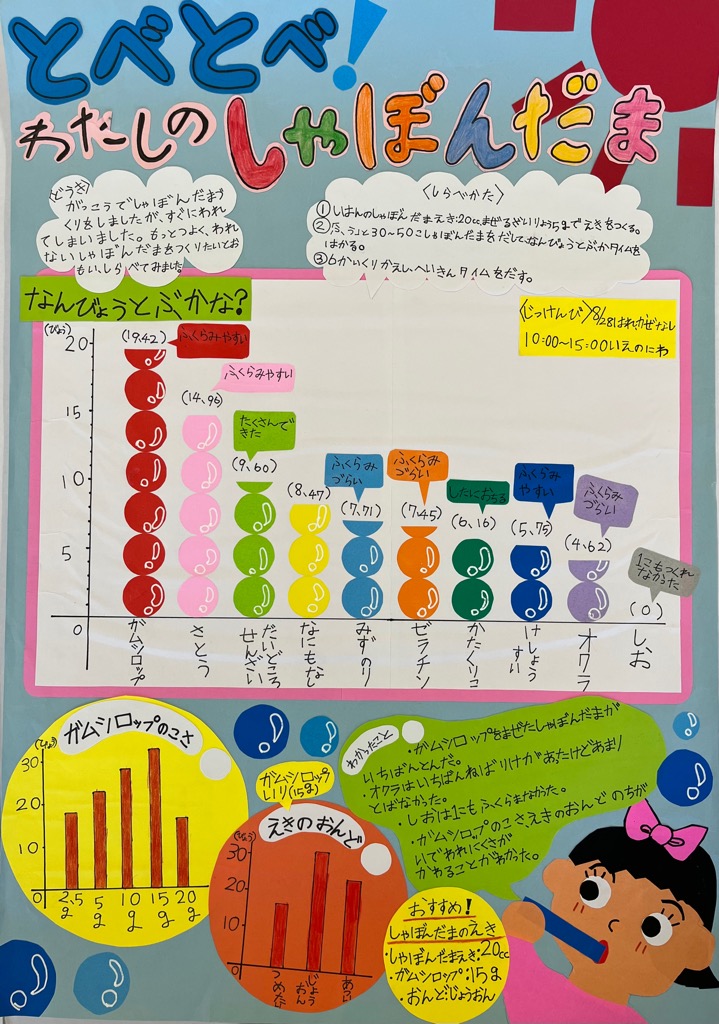 とべとべ!
わたしの しゃぼんだま
〈どうき〉
がっこうでしゃぼんだまづ
くりをしましたが、すぐにわれ
てしまいました。もっとつよく、われ
ないしゃぼんだまをつくりたいとお
もい、しらべてみました。
〈しらべかた〉
①しはんのしゃぼんだまえき:20ccまぜるざいりょう5gでえきをつくる。
②「ふぅっ」と30〜50こしゃぼんだまをだして、なんびょうとぶかタイムを
はかる。
③6かいくりかえしへいきんタイムをだす。
なんびょうとぶかな?
〈じっけんび〉8/28はれかぜなし
10:00〜15:00いえのにわ
(びょう)
20
15
10
5
0
(19.42)
ふくらみやすい
(14.96)
ふくらみやすい
たくさんで
きた
(9.60)
(8.47)
ふくらみ
づらい
(7.71)
ふくらみ
づらい
(7.45)
したにおちる
(6.16)
ふくらみ
やすい
(5.75)
ふくらみ
づらい
(4.62)
1こもつくれ
なかった
(0)
ガムシロップ
さとう
だいどころ
せんざい
なにもなし
みずのり
ゼラチン
かたくりこ
けしょう
すい
オクラ
しお
ガムシロップのこさ
(びょう)
30
20
10
0
2.5g
5g
10g
15g
20g
ガムシロップ
いり(15g)
えきのおんど
(びょう)
30
20
10
0
つめたい
じょう
おん
あつい
わかったこと
・ガムシロップをまぜたしゃぼんだまが
いちばんとんだ。
・オクラはいちばんねばりけがあたけどあまり
とばなかった。
・しおは1こもふくらまなかった。
・ガムシロップのこさえきのおんどのちが
いでわれにくさが
かわることがわかった。
おすすめ!
しゃぼんだまのえき
・しゃぼんだまえき:20cc
・ガムシロップ:15g
・おんど:じょうおん